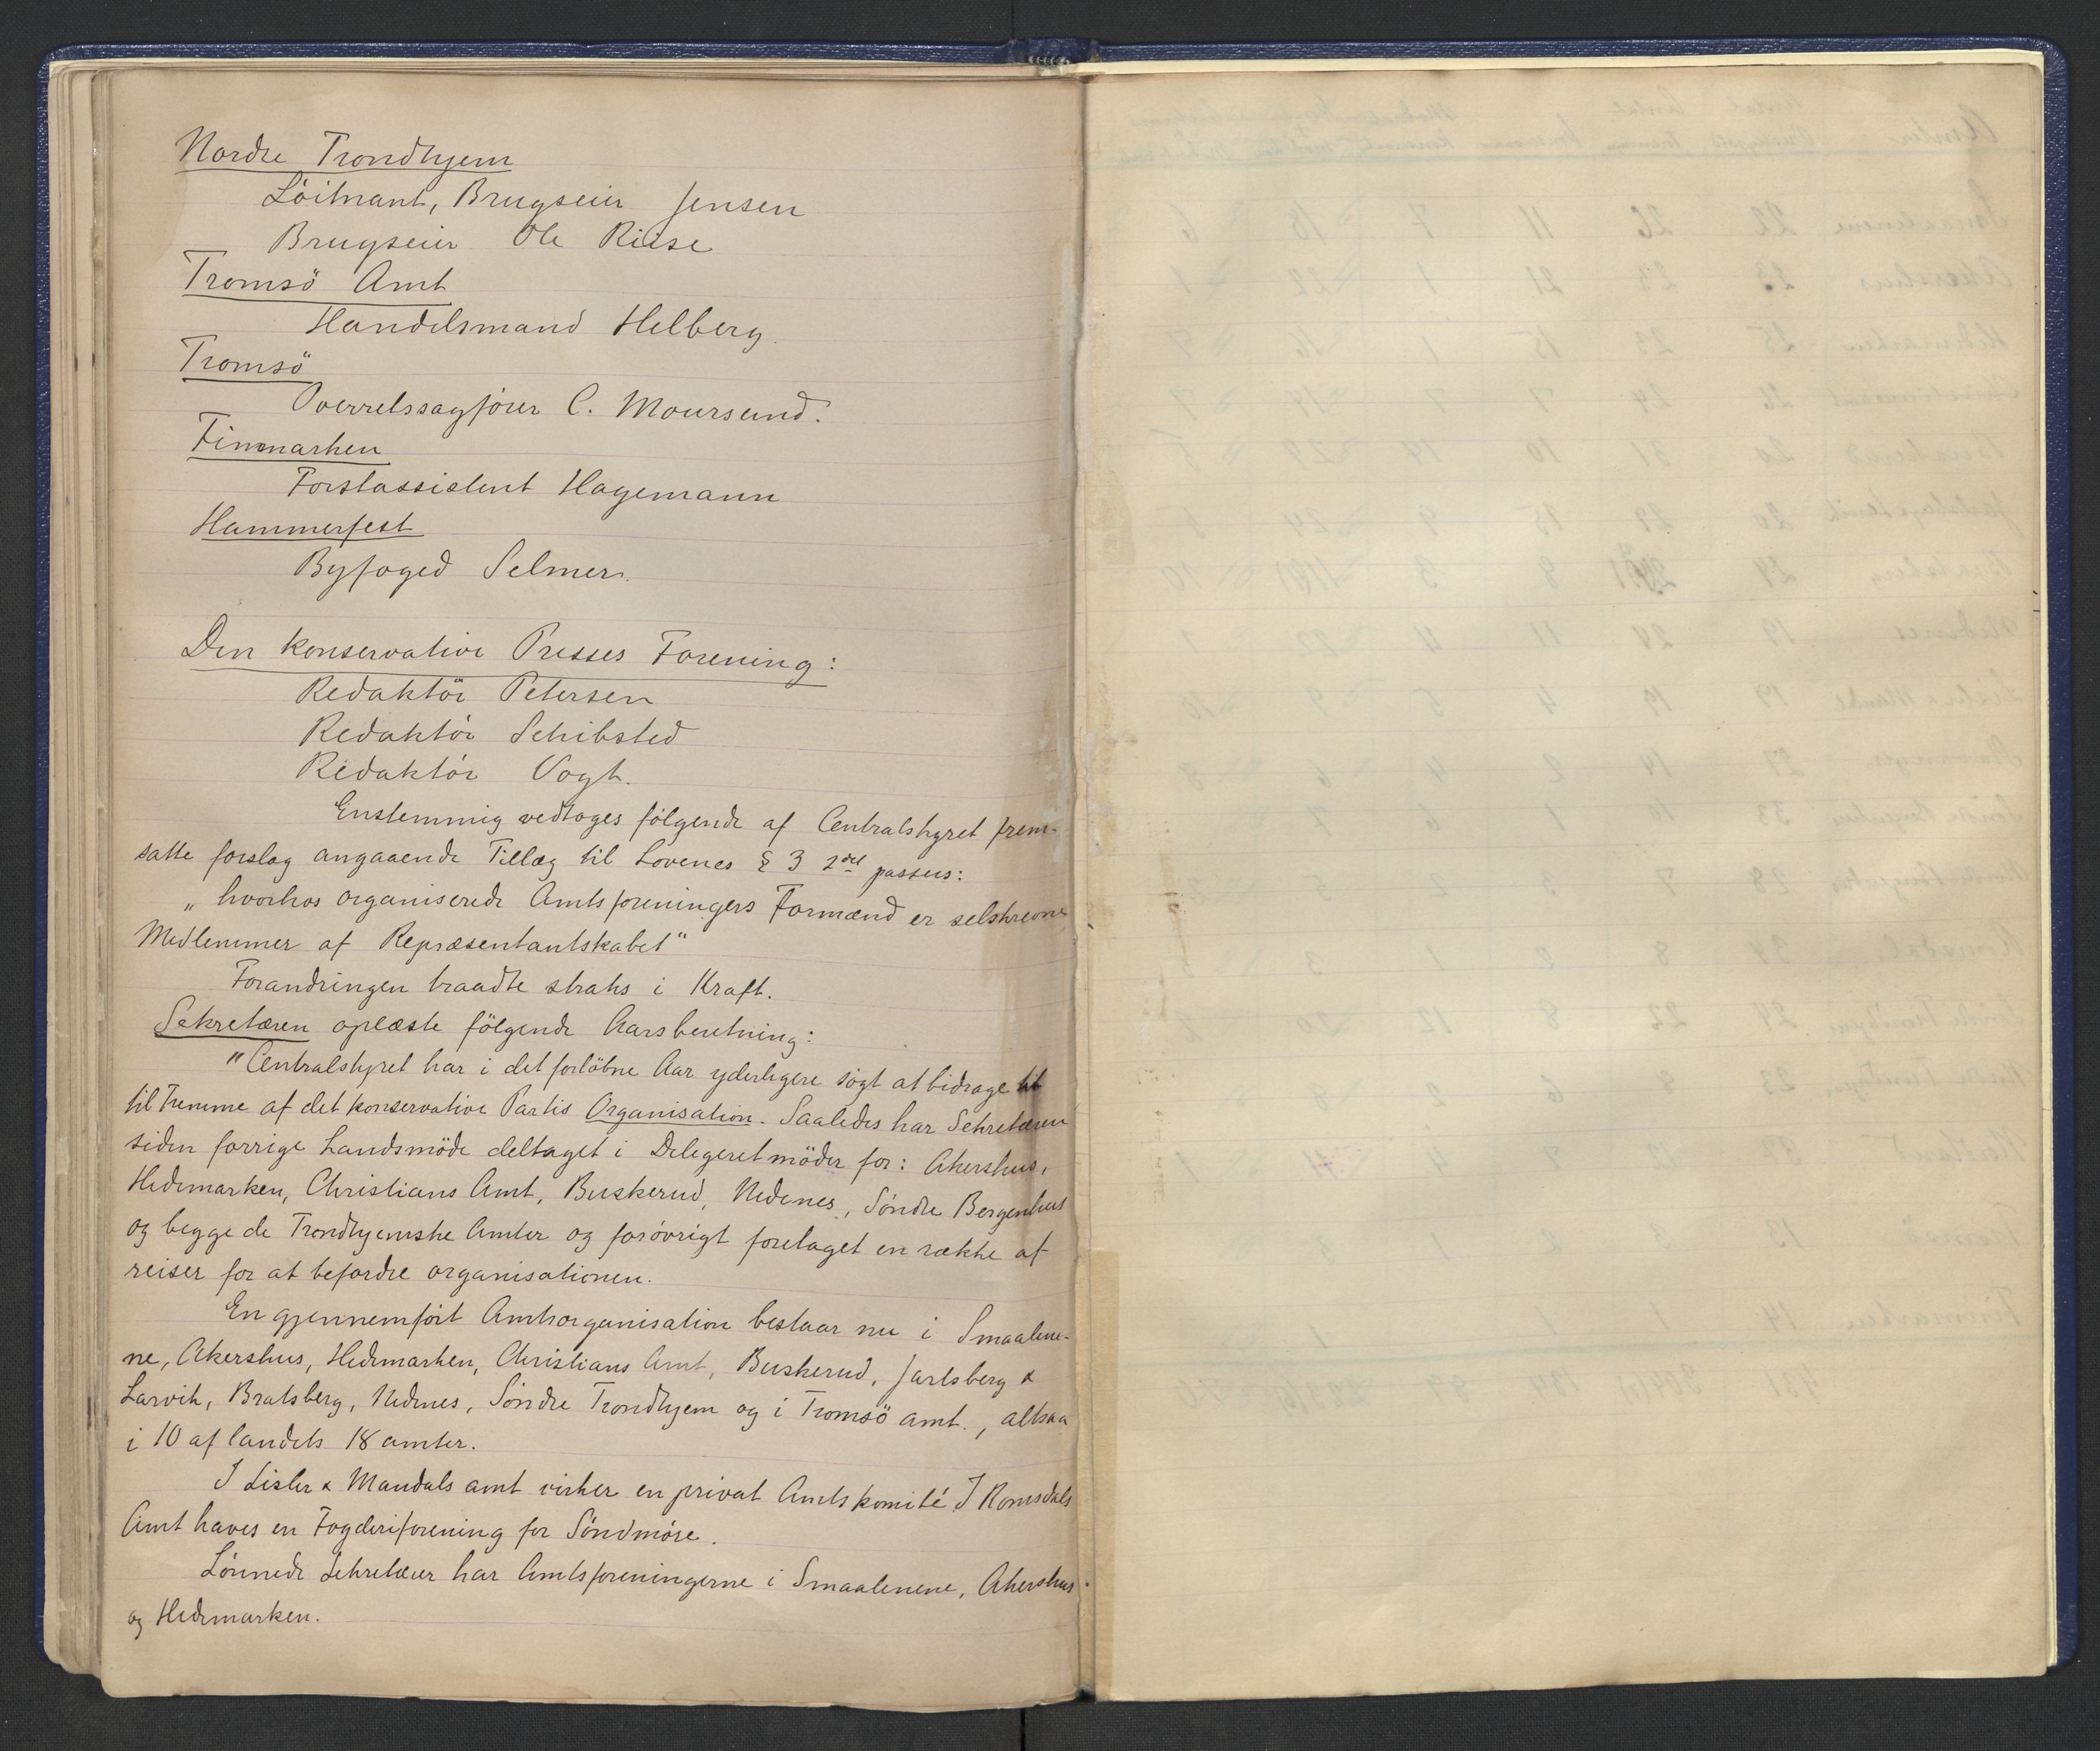 Nordre Trondhjem
Löitnant, Brugseier Jensen
Brugseier Ole Riise
Tromsö Amt
Handelsmand Helberg.
Tromsö
Overretssagförer C. Moursund.
Finmarken
Forstassistent Hagemann
Hammerfest
Byfoged Selmer.
Den konservative Presses Forening:
Redaktör Petersen
Redaktör Schibsted
Redaktör Vogt.
Enstemmig vedtoges fölgende af Centralstyret frem-
satte forslag angaaende Tillæg til Lovenes § 3 2det passus:
„hvorhos organiserede Amtsforeningers Formænd er selvskrevne
Medlemmer af Repræsentantskabet"
Forandringen traadte straks i Kraft.
Sekretæren oplæste fölgende Aarsberetning:
"Centralstyret har i det forlöbne Aar yderligere sögt at bidrage til
til Fremme af det konservative Partis Organisation. Saaledes har Sekretæren
siden forrige Landsmöde deltaget i Delegeretmöder for: Akershus,
Hedemarken, Christians Amt, Buskerud, Nedenes, Söndre Bergenhus
og begge de Trondhjemske Amter og forövrigt foretaget en række af
reiser for at befordre organisationen.
En gjennemfört Amtsorganisation bestaar nu i Smaalene-
ne, Akershus, Hedemarken, Christians Amt, Buskerud, Jarlsberg &
Larvik, Bratsberg, Nedenes, Söndre Trondhjem og i Tromsö amt., altsaa
i 10 af landets 18 amter.
I Lister & Mandals amt virker en privat Amtskomité. I Romsdals
Amt haves en Fogderiforening for Söndmöre.
Lönnede Sekretærer har Amtsforeningerne i Smaalenene, Akershus
og Hedemarken.